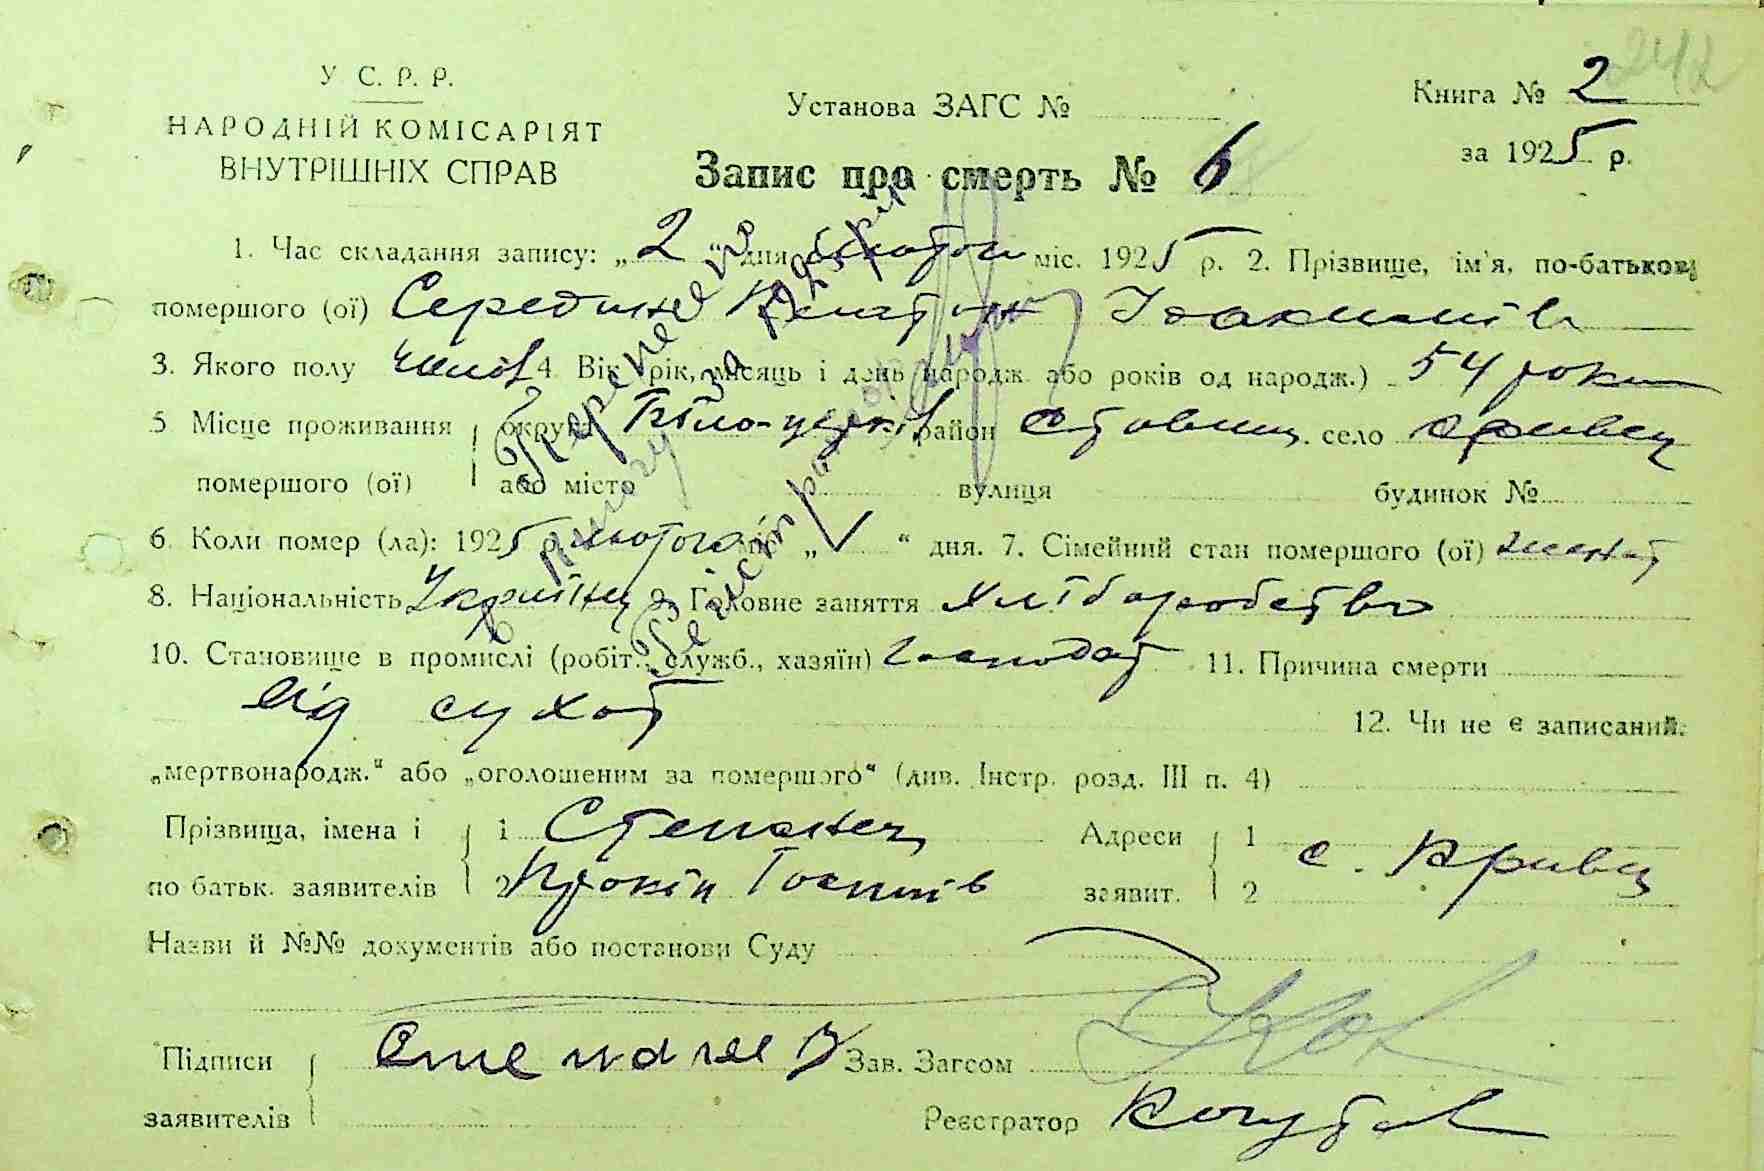 242
У С. Р. Р.
НАРОДНІЙ КОМІСАРІЯТ
ВНУТРІШНІХ СПРАВ
Установа ЗАГС №
Книга № 2
за 1925 р.
Запис про смерть № 6
1. Час складання запису: „2“ дня лютого міс. 1925 р. 2. Прізвище, ім'я, по-батькові
помершого (ої) Середине
3. Якого полу чолов 4. Вік (рік, місяць і день народж. або років од народж.) 54 роки
5 Місце проживання округа Біло-церків район Ставищ. село Кривец
помершого (ої) або місто вулиця будинок №
6. Коли помер (ла): 1925 р. лютого міс. „1“ дня. 7. Сімейний стан помершого (ої) женат
8. Національність Українец 9. Головне заняття Хліборобство
10. Становище в промислі (робіт., служб., хазяїн) господар 11. Причина смерти
від сухот 12. Чи не є записаний
„мертвонародж.“ або „оголошеним за помершого“ (див. Інстр. розд. III п. 4)
Прізвища, імена і 1 Степанец Адреси 1 с. Кривец
по батьк. заявителів 2 Прокіп заявит. 2
Назви й №№ документів або постанови Суду
Підписи Степанец Зав. Загсом
заявителів Реєстратор
Перенесено
книгу за 1925 рік